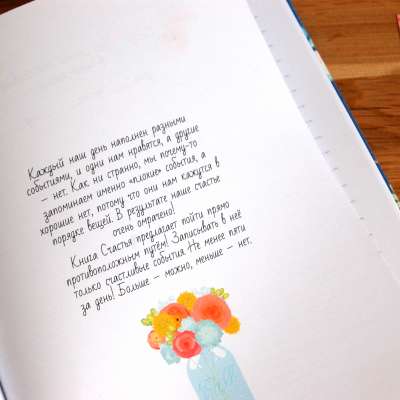 Каждый наш день наполнен разными
событиями, и одни нам нравятся, а другие
– нет. Как ни странно, мы почему-то
запоминаем именно «плохие» события, а
хорошие нет, потому что они нам кажутся в
порядке вещей. В результате наше счастье
очень омрачено!
Книга Счастья предлагает пойти прямо
противоположным путём! Записывать в неё
только счастливые события. Не менее пяти
за день! Больше – можно, меньше – нет.